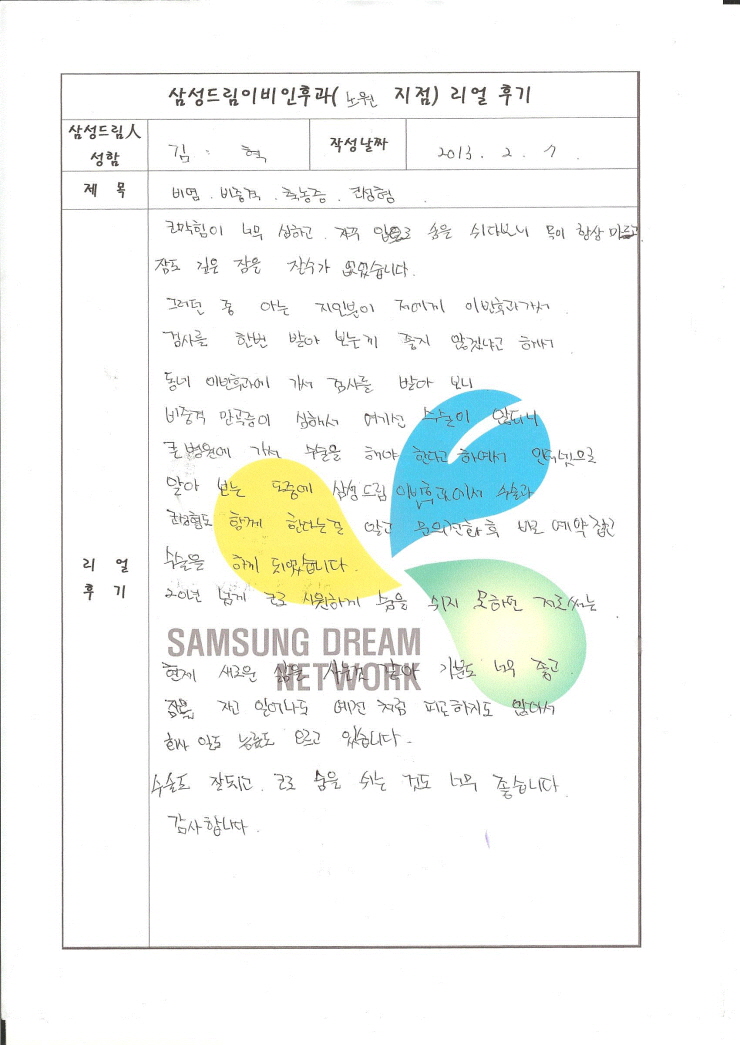 삼성드림이비인후과( 노원 지점) 리얼 후기
삼성드림人 성함
김 : 혁
작성날짜
2013. 2. 7.
제 목
비염. 비중격. 축농증. 코성형
리 얼 후 기
코막힘이 너무 심하고. 자꾸 입으로 숨을 쉬다보니 목이 항상 마르고
잠도 깊은 잠을 잘수가 없었습니다.
그러던 중 아는 지인분이 저에게 이빈후과가서
검사를 한번 받아 보는게 좋지 않겠냐고 해서
동네 이빈후과에 가서 검사를 받아 보니
비중격 만곡증이 심해서 여기선 수술이 안되니
큰 병원에 가서 수술을 해야 한다고 하여서 인터넷으로
알아 보는 도중에 삼성드림 이빈후과에서 수술과
코성형도 함께 한다는걸 알고 문의전화 후 바로 예약 잡고
수술을 하게 되었습니다.
20년 넘게 코로 시원하게 숨을 쉬지 못하던 저로써는
SAMSUNG DREAM
NETWORK
현재 새로운 삶을 사는것 같아 기분도 너무 좋고.
잠을 자고 일어나도 예전 처럼 피곤하지도 않아서
회사 일도 능률도 오르고 있습니다.
수술도 잘되고. 코로 숨을 쉬는 것도 너무 좋습니다.
감사합니다.